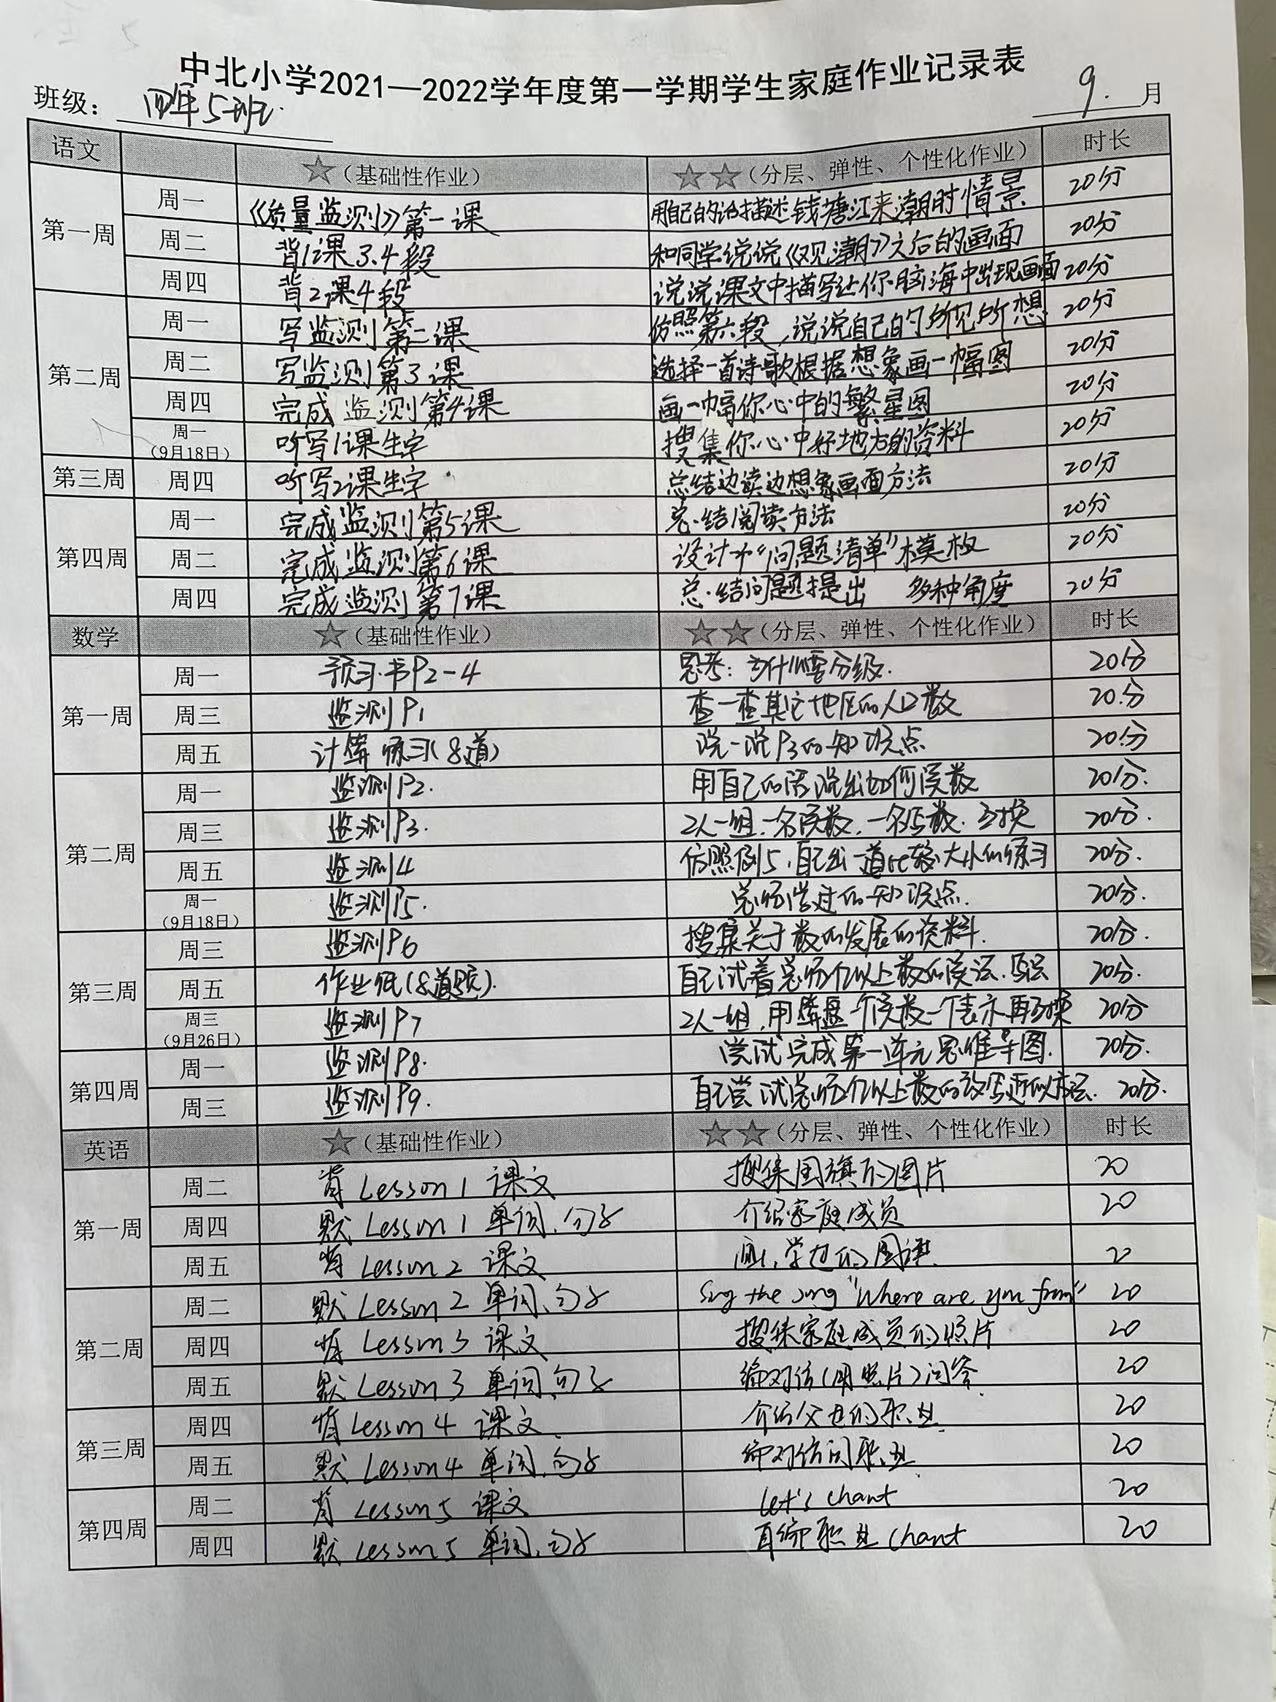 中北小学2021—2022学年度第一学期学生家庭作业记录表
班级： 四年5班 9. 月
语文 ★（基础性作业） ★★（分层、弹性、个性化作业） 时长
第一周 周一 《质量监测》第一课 用自己的话描述钱塘江来潮时情景 20分
周二 背1课3.4段 和同学说说《观潮》之后的画面 20分
周四 背2课4段 说说课文中描写让你脑海中出现画面 20分
第二周 周一 写监测第二课 仿照第六段，说说自己的所见所想 20分
周二 写监测第3课 选择一首诗歌根据想象画一幅图 20分
周四 完成监测第4课 画一幅你心中的繁星图 20分
周一（9月18日） 听写1课生字 搜集你心中好地方的资料 20分
第三周 周四 听写2课生字 总结边读边想象画面方法 20分
第四周 周一 完成监测第5课 总结阅读方法 20分
周二 完成监测第6课 设计个“问题清单”模板 20分
周四 完成监测第7课 总结问题提出 多种角度 20分
数学 ★（基础性作业） ★★（分层、弹性、个性化作业） 时长
第一周 周一 预习书P2-4 思考：为什么要分级. 20分
周三 监测P1 查一查其它地区的人口数 20分
周五 计算练习（8道） 说一说P3的知识点 20分
第二周 周一 监测P2. 用自己的话说出如何读数 20分.
周三 监测P3. 2人一组，一名读数，一名写数.互换 20分.
周五 监测4 仿照例5，自己出一道比较大小的练习 20分.
周一（9月18日） 监测P5. 总结学过的知识点. 20分.
第三周 周三 监测P6 搜集关于数的发展的资料. 20分.
周五 作业纸（8道题）. 自己试着总结亿以上数的读法.写法 20分.
周三（9月26日） 监测P7 2人一组，用算盘一个读数一个表示再互换 20分
第四周 周一 监测P8. 尝试完成第一单元思维导图. 20分.
周三 监测P9. 自己尝试总结亿以上数的改写 20分.
英语 ★（基础性作业） ★★（分层、弹性、个性化作业） 时长
第一周 周二 背Lesson 1 课文 搜集国旗的图片 20
周四 默Lesson 1 单词、句子 介绍家庭成员 20
周五 背Lesson 2 课文 20
第二周 周二 默Lesson 2 单词、句子 Sing the song "Where are you from" 20
周四 背Lesson 3 课文 搜集家庭成员的照片 20
周五 默Lesson 3 单词、句子 编对话（用照片）问答 20
第三周 周四 背Lesson 4 课文. 介绍父母的职业 20
周五 默Lesson 4 单词、句子 编对话问职业 20
第四周 周二 背Lesson 5 课文 let's chant 20
周四 默Lesson 5 单词、句子 自编职业chant 20